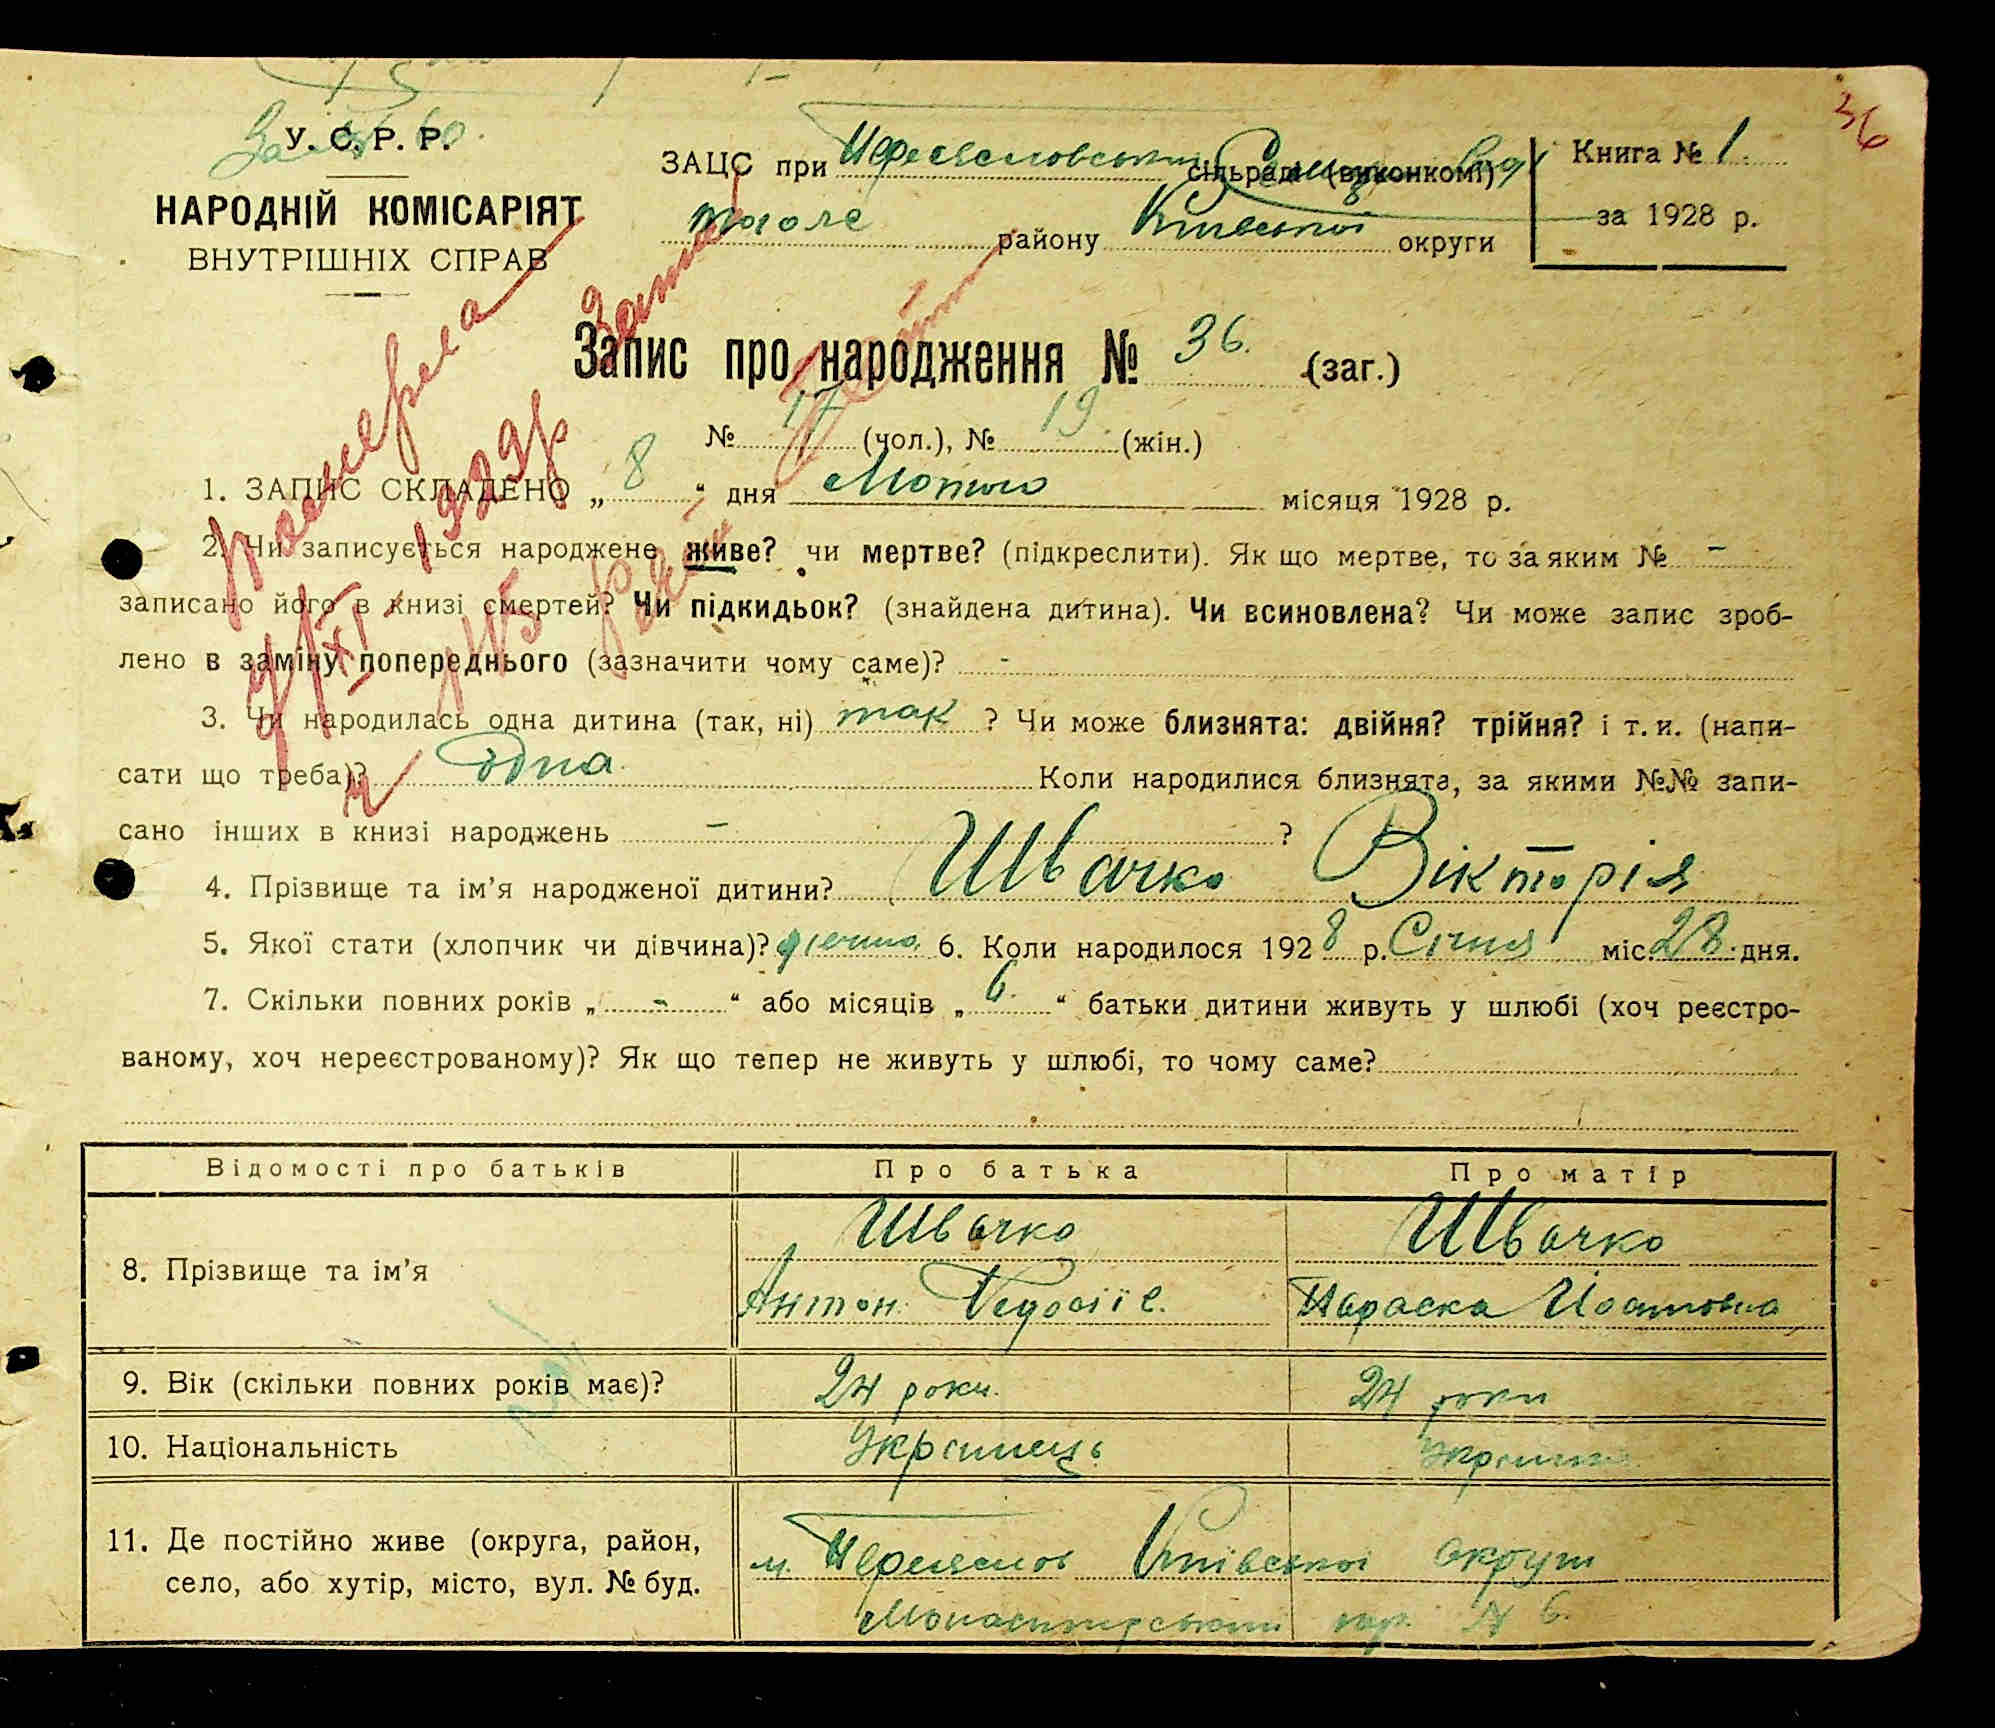 36
У. С. Р. Р.
НАРОДНІЙ КОМІСАРІЯТ
ВНУТРІШНІХ СПРАВ
ЗАЦС при сільраді (виконкомі)
району Київської округи
Книга № 1.
за 1928 р.
Запис про народження № 36. (заг.)
№ 17 (чол.), № 19. (жін.)
1. ЗАПИС СКЛАДЕНО „ 8 “ дня Лютого місяця 1928 р.
2. Чи записується народжене живе? чи мертве? (підкреслити). Як що мертве, то за яким № -
записано його в книзі смертей? Чи підкидьок? (знайдена дитина). Чи всиновлена? Чи може запис зроб-
лено в заміну попереднього (зазначити чому саме)? -
3. Чи народилась одна дитина (так, ні) так ? Чи може близнята: двійня? трійня? і т. и. (напи-
сати що треба)? одна. Коли народилися близнята, за якими №№ запи-
сано інших в книзі народжень - ?
4. Прізвище та ім’я народженої дитини? Швачко Вікторія
5. Якої стати (хлопчик чи дівчина)? дівчина 6. Коли народилося 1928 р. Січня міс. 28. дня.
7. Скільки повних років „ - “ або місяців „ 6. “ батьки дитини живуть у шлюбі (хоч реєстро-
ваному, хоч нереєстрованому)? Як що тепер не живуть у шлюбі, то чому саме?
Відомості про батьків Про батька Про матір
8. Прізвище та ім’я Швачко Швачко
Антон Параска
9. Вік (скільки повних років має)? 24 роки. 24 роки
10. Національність Українець Українка
11. Де постійно живе (округа, район,
село, або хутір, місто, вул. № буд.
м. Переяслов Київської округи
№ 6.